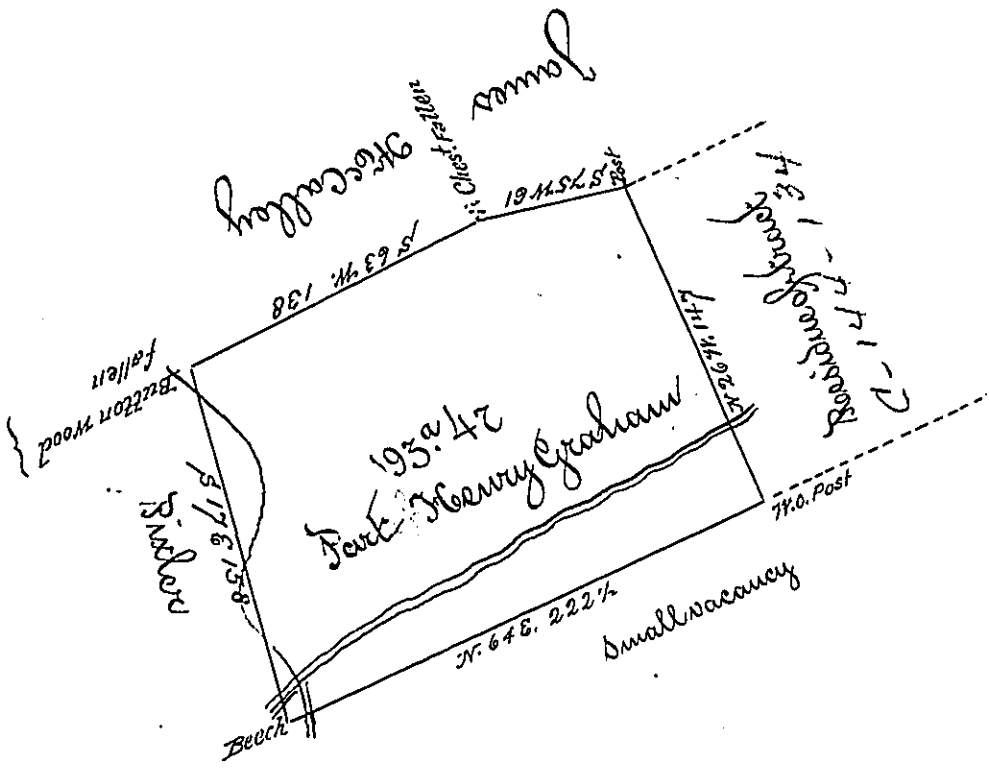 James
McCalley
Chest. Fallen
S 75 W 61
Post
S 63 W. 138
Button Wood
fallen
S 17 E 158
Bixler
193.a 42
Part Henry Graham
N 26 W. 147
Residue of tract
C-145-134
W.O. Post
N. 64 E. 222 ½
Small vacancy
Beech